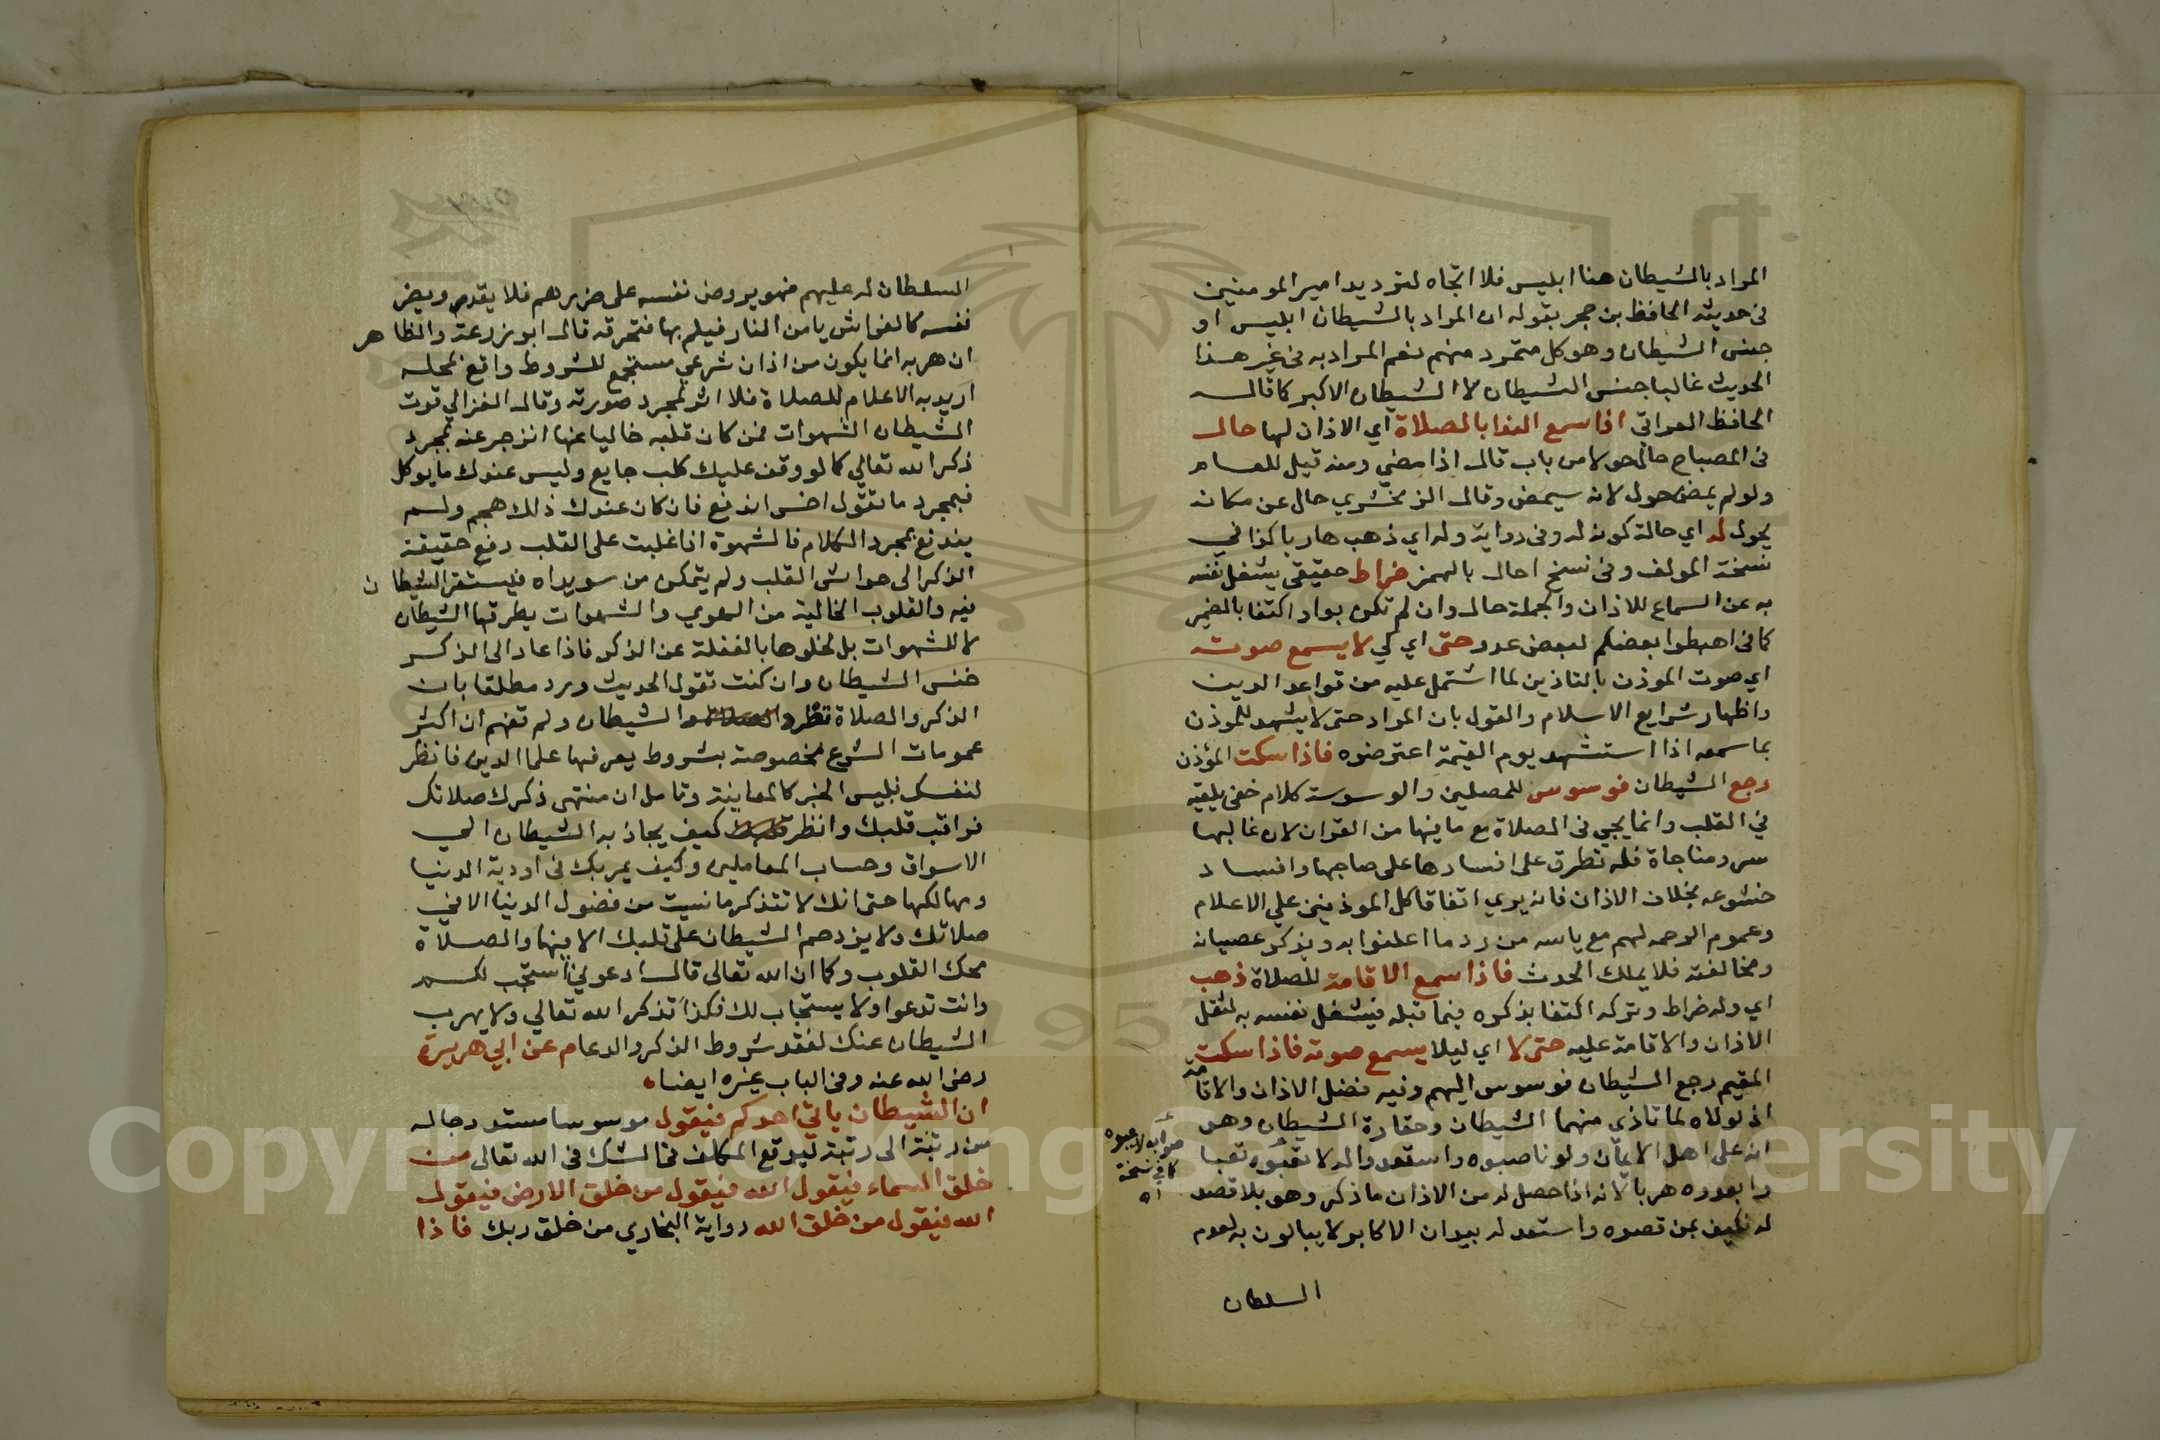 المراد بالشيطان هنا ابليس فلا اتجاه لترديد امير المومنين
في حديثه الحافظ بن حجر بقوله ان المراد بالشيطان ابليس او
جنس الشيطان وهو كل متمرد منهم نعم المراد به في غير هذا
الحديث غالبا جنس الشيطان لا الشيطان الاكبر كما قاله
الحافظ العراقي اذا سمع الندا بالصلاة اي الاذان لها حال
في المصباح حال حولا من باب قال اذا مضي ومنه قيل للعام
ولو لم يمض حول لانه سيمضي وقال الزمخشري حال عن مكانه
يحول له اي حالة كونه له وفي رواية وله اي ذهب هاربا كذا في
نسخة المولف وفي نسخ احال بالهمز ضراط حقيقي يشغل نفسه
به عن السماع للاذان والجملة حال وان لم تكن بواو اكتفا بالضمير
كما في اهبطوا بعضكم لبعض عدو حتى اي كي لا يسمع صوته
اي صوت الموذن بالتاذين لما اشتمل عليه من قواعد الدين
واظهار شرايع الاسلام والقول بان المراد حتى لا يشهد للموذن
بما سمعه اذا استشهد يوم القيمة اعترضوه فاذا سكت المؤذن
رجع الشيطان فوسوس للمصلين والوسوسة كلام خفي يلقيه
في القلب وانما يجي في الصلاة مع ما فيها من القران لان غالبها
سر ومناجاة فله تطرق على افسادها على صاحبها وافساد
خشوعه بخلاف الاذان فانه يري اتفاق كل الموذنين علي الاعلام
وعموم الرحمه لهم مع ياسه من رد ما اعلنوا به ويذكر عصيانه
ومخالفته فلا يملك الحدث فاذا سمع الاقامة للصلاة ذهب
اي وله ضراط وتركه اكتفا بذكره فيما قبله فيشغل نفسه به لثقل
الاذان والاقامة عليه حتى لا اي ليلا يسمع صوته فاذا سكت
المقيم رجع الشيطان فوسوس اليهم وفيه فضل الاذان والاقامة
اذ لولاه لما تاذي منهما الشيطان وحقارة الشيطان وهو
انه على اهل الايمان ولو ناصبوه واستعدوا له لا تعبوه تعبا
وابعدوه هربا لانه اذا حصل له من الاذان ما ذكر وهو بلا قصد
له فكيف بمن قصده واستعد له بيد ان الاكابر لا يبالون به لعدم
السلطان
صوابه لا
كما في نسخة
اه
السلطان له عليهم فهو يروض نفسه على ضررهم فلا يقدر ويضر
نفسه كالفراش يا من النار فيلم بها فتحرقه قال ابو زرعة والظاهر
ان هربه انما يكون من اذان شرعي مستجمع للشروط واقع بمحله
اريد به الاعلام للصلاة فلا اثر لمجرد صورته وقال الغزالي قوت
الشيطان الشهوات فمن كان قلبه خاليا عنها انزجر عنه بمجرد
ذكر الله تعالي كما لو وقف عليك كلب جايع وليس عندك ما يوكل
فبمجرد ما تقول اخس اندفع فان كان عندك ذلك هجم ولم
يندفع بمجرد الكلام فالشهوة اذا غلبت على القلب دفع حقيقة
الذكر الى حواشي القلب ولم يتمكن من سويداه فيستقر الشيطان
فيه والقلوب الخالية من الهوي والشهوات يطرقها الشيطان
لا للشهوات بل لخلوها بالغفلة عن الذكر فاذا عاد الى الذكر
خنس الشيطان وان كنت تقول الحديث ورد مطلقا بان
الذكر والصلاة تطرد الشيطان ولم تفهم ان اكثر
عمومات الشرع مخصوصة بشروط يعرفها علما الدين فانظر
لنفسك فليس الخبر كالمعاينة وتامل ان منتهى ذكرك صلاتك
فراقب قلبك وانظر كيف يجاذبه الشيطان الي
الاسواق وحساب المعاملين وكيف يمر بك في اودية الدنيا
ومهالكها حتى انك لا تتذكر ما نسيت من فضول الدنيا الا في
صلاتك ولا يزدحم الشيطان على قلبك الا فيها والصلاة
محك القلوب وكما ان الله تعالى قال ادعوني استجب لكم
وانت تدعوا ولا يستجاب لك فكذا تذكر الله تعالي ولا يهرب
الشيطان عنك لفقد شروط الذكر والدعا م عن ابي هريرة
رضي الله عنه وفي الباب غيره ايضا
ان الشيطان ياتي احدكم فيقول موسوسا مستدرجا له
من رتبة الى رتبة ليوقع المكلف في الشك في الله تعالى من
خلق السماء فيقول الله فيقول من خلق الارض فيقول
الله فيقول من خلق الله رواية البخاري من خلق ربك فاذا
Copyright © King Saud University
1957